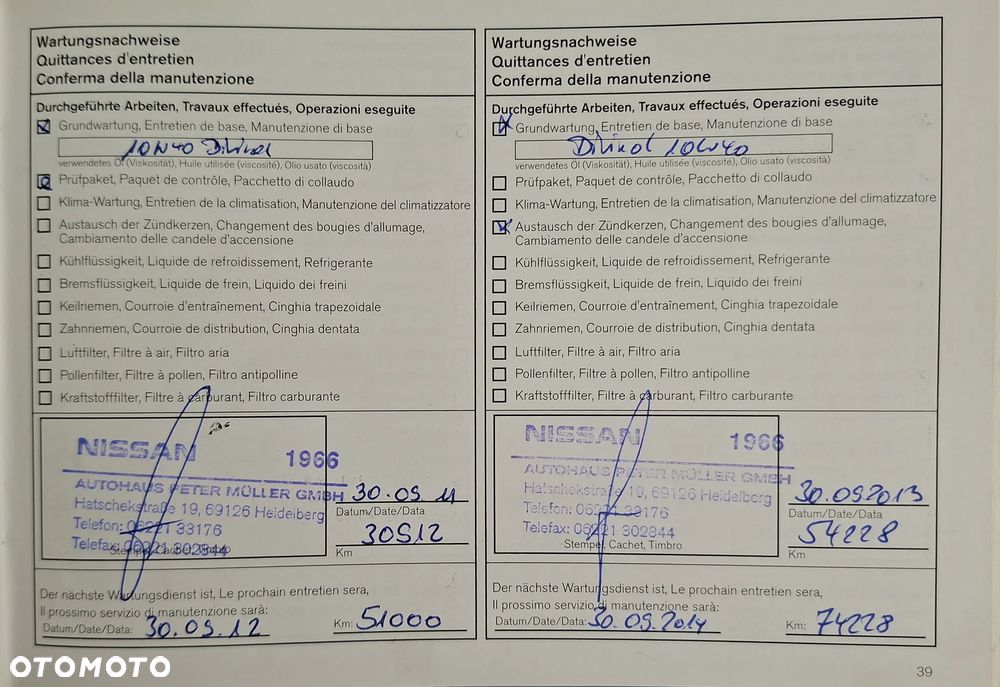 Wartungsnachweise
Quittances d'entretien
Conferma della manutenzione
Durchgeführte Arbeiten, Travaux effectués, Operazioni eseguite
Grundwartung, Entretien de base, Manutenzione di base
10W40 Divinol
verwendetes Öl (Viskosität), Huile utilisée (viscosité), Olio usato (viscosità)
Prüfpaket, Paquet de contrôle, Pacchetto di collaudo
Klima-Wartung, Entretien de la climatisation, Manutenzione del climatizzatore
Austausch der Zündkerzen, Changement des bougies d'allumage,
Cambiamento delle candele d'accensione
Kühlflüssigkeit, Liquide de refroidissement, Refrigerante
Bremsflüssigkeit, Liquide de frein, Liquido dei freini
Keilriemen, Courroie d'entraînement, Cinghia trapezoidale
Zahnriemen, Courroie de distribution, Cinghia dentata
Luftfilter, Filtre à air, Filtro aria
Pollenfilter, Filtre à pollen, Filtro antipolline
Kraftstofffilter, Filtre à carburant, Filtro carburante
NISSAN 1966
AUTOHAUS PETER MÜLLER GMBH
Hatschekstraße 19, 69126 Heidelberg
Telefon: 06221 33176
Telefax: 06221 302844
Stempel, Cachet, Timbro
30.09.11
Datum/Date/Data
30912
Km
Der nächste Wartungsdienst ist, Le prochain entretien sera,
Il prossimo servizio di manutenzione sarà:
Datum/Date/Data: 30.09.12 Km: 51000
Wartungsnachweise
Quittances d'entretien
Conferma della manutenzione
Durchgeführte Arbeiten, Travaux effectués, Operazioni eseguite
Grundwartung, Entretien de base, Manutenzione di base
Divinol 10W40
verwendetes Öl (Viskosität), Huile utilisée (viscosité), Olio usato (viscosità)
Prüfpaket, Paquet de contrôle, Pacchetto di collaudo
Klima-Wartung, Entretien de la climatisation, Manutenzione del climatizzatore
Austausch der Zündkerzen, Changement des bougies d'allumage,
Cambiamento delle candele d'accensione
Kühlflüssigkeit, Liquide de refroidissement, Refrigerante
Bremsflüssigkeit, Liquide de frein, Liquido dei freini
Keilriemen, Courroie d'entraînement, Cinghia trapezoidale
Zahnriemen, Courroie de distribution, Cinghia dentata
Luftfilter, Filtre à air, Filtro aria
Pollenfilter, Filtre à pollen, Filtro antipolline
Kraftstofffilter, Filtre à carburant, Filtro carburante
NISSAN 1966
AUTOHAUS PETER MÜLLER GMBH
Hatschekstraße 19, 69126 Heidelberg
Telefon: 06221 33176
Telefax: 06221 302844
Stempel, Cachet, Timbro
30.09.2013
Datum/Date/Data
54228
Km
Der nächste Wartungsdienst ist, Le prochain entretien sera,
Il prossimo servizio di manutenzione sarà:
Datum/Date/Data: 30.09.2014 Km: 74228
39
OTOMOTO